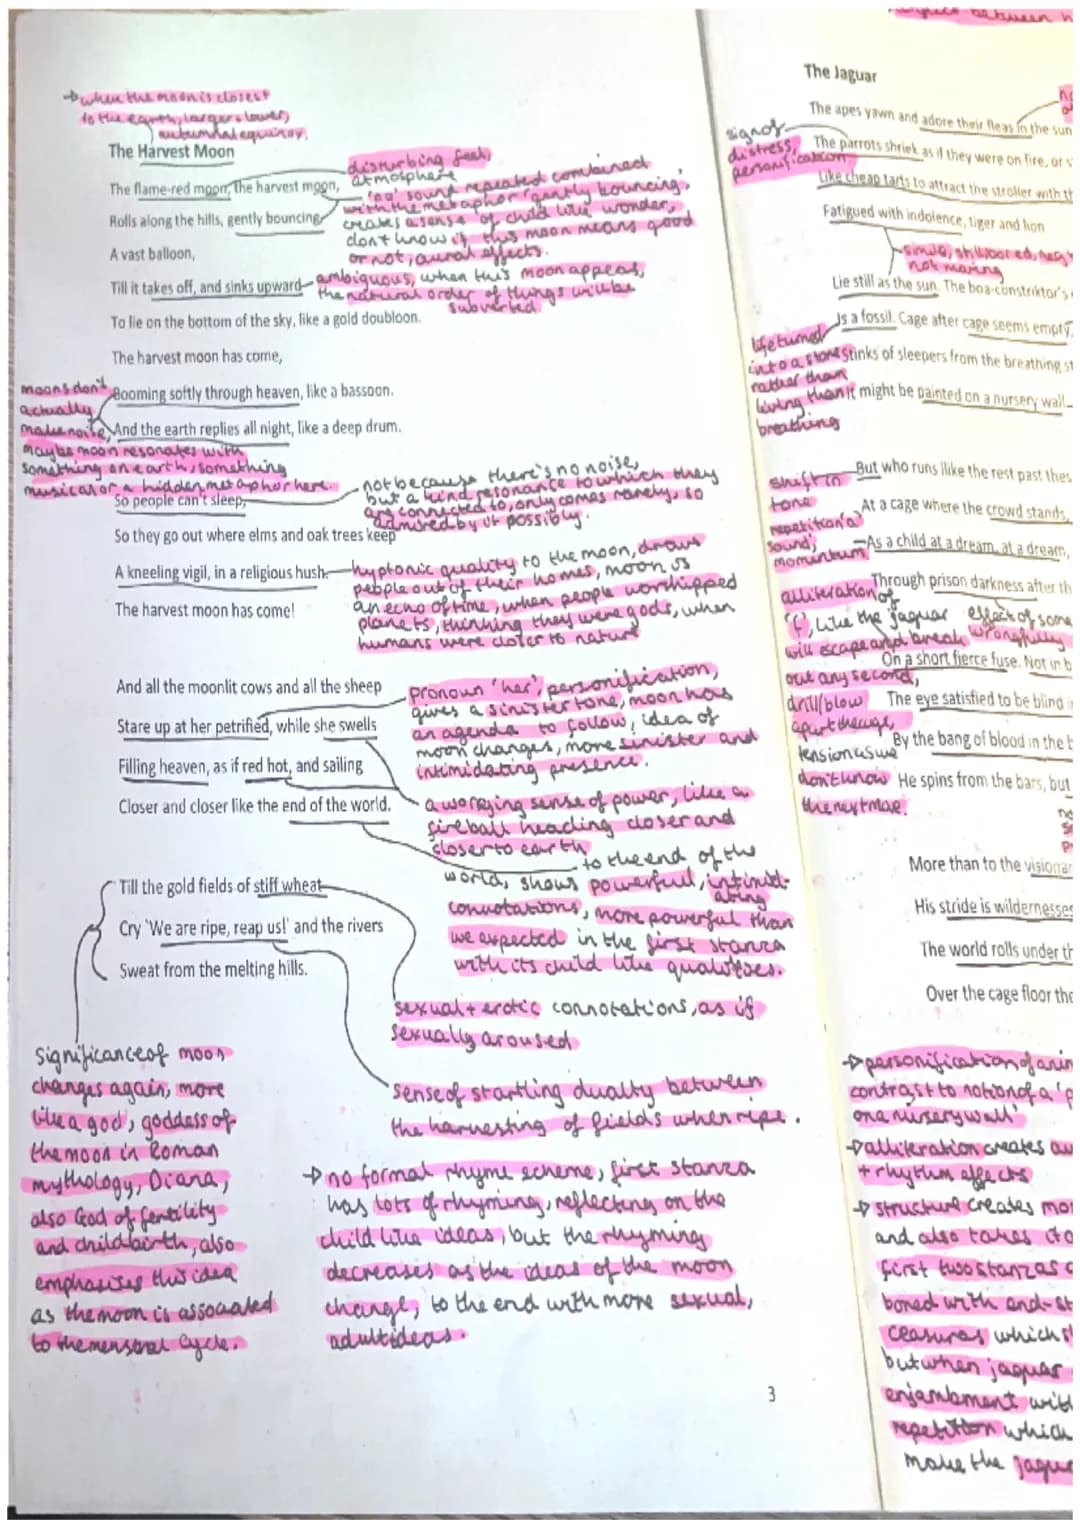 → when the moon is closest
to the earth, larger + lower,
autumnal equinox.
The Harvest Moon
The flame-red moon, the harvest moon,
Rolls along the hills, gently bouncing,
A vast balloon,
Till it takes off, and sinks upward
To lie on the bottom of the sky, like a gold doubloon.
The harvest moon has come,
Booming softly through heaven, like a bassoon.
And the earth replies all night, like a deep drum.
So people can't sleep,
So they go out where elms and oak trees keep
A kneeling vigil, in a religious hush.
The harvest moon has come!
And all the moonlit cows and all the sheep
Stare up at her petrified, while she swells
Filling heaven, as if red hot, and sailing
Closer and closer like the end of the world.
Till the gold fields of stiff wheat
Cry 'We are ripe, reap us!' and the rivers
Sweat from the melting hills.
disturbing feel,
atmosphere
'oo' sound repeated combined
with the metaphor 'gently bouncing',
creates a sense of child like wonder,
don't know if this moon means good
or not, aural effects.
ambiguous, when this moon appears,
the natural order of things will be
subverted.
moons don't
actually
make noise,
maybe moon resonates with
something on earth, something
musical or a hidden metaphor here.
not because there's no noise,
but a kind resonance to which they
are connected to, only comes rarely, so
admired by it possibly.
hyptonic quality to the moon, draws
people out of their homes, moon is
an echo of time, when people worshipped
planets, thinking they were gods, when
humans were closer to nature
pronoun 'her', personification,
gives a sinister tone, moon has
an agenda to follow, idea of
moon changes, more sinister and
intimidating presence.
a worrying sense of power, like a
fireball heading closer and
closer to earth
to the end of the
world, shows powerful, intimid-
ating
connotations, more powerful than
we expected in the first stanza
with its child like qualities.
sexual + erotic connotations, as if
sexually aroused
sense of startling duality between
the harvesting of fields when ripe.
Significance of moon
changes again, more
like a god, goddess of
the moon in Roman
mythology, Diana,
also God of fertility
and childbirth, also
emphasises this idea
as the moon is associated
to the menstral cycle.
→ no formal rhyme scheme, first stanza
has lots of rhyming, reflecting on the
child like ideas, but the rhyming
decreases as the ideas of the moon
change, to the end with more sexual,
adult ideas.
3
between
The Jaguar
The apes yawn and adore their fleas in the sun
The parrots shriek as if they were on fire, or
Like cheap tarts to attract the stroller with
Fatigued with indolence, tiger and lion
Lie still as the sun. The boa-constriktor's
Is a fossil. Cage after cage seems empty,
Stinks of sleepers from the breathing
It might be painted on a nursery wall
But who runs ilike the rest past
At a cage where the crowd stands,
As a child at a dream, at a dream,
Through prison darkness after
On a short fierce fuse. Not in
The eye satisfied to be blind
By the bang of blood in the
He spins from the bars, but
More than to the
His stride is
The world rolls under
Over the cage floor
sign of
distress,
personification
simile, still
not moving
life turned
into a stone
rather than
living than
breathing
shift in
tone
repetition 'a'
sound,
momentum
alliteration of
'f', like the jaguar
will escape and break
out any second,
drill/blow
apart the cage,
tension as we
don't know
the next move.
effect of some
wrongfully
→ personification of
contrast to notion of a
on a nursery wall'
→ alliteration creates
+ rhythm effects
→ structure creates
and also takes
first two stanzas
boned with
ceasuras which
but when jaguar
enjambment
repetition which
make the